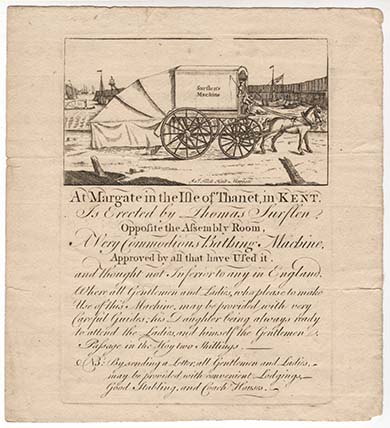 Surflen's
Machine
At Margate in the Isle of Thanet, in KENT.
Is Erected by Thomas Surflen
Opposite the Assembly Room,
A Very Commodious Bathing Machine,
Approved by all that have Used it.
and thought not Inferior to any in England.
Where all Gentlemen and Ladies, who please to make
Use of this Machine, may be provided with very
Careful Guides; his Daughter being always ready
to attend the Ladies, and himself the Gentlemen
Passage in the Hoy two Shillings
NB: By sending a Letter, all Gentlemen and Ladies,
may be provided with convenient Lodgings,
Good Stabling, and Coach Houses.